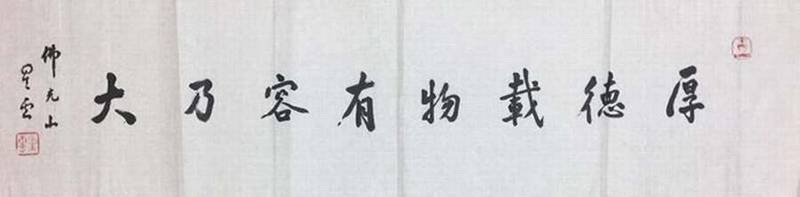 厚德載物有容乃大
佛光山
星雲